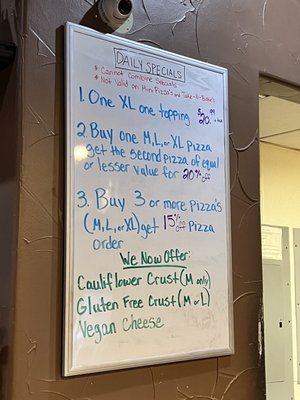 DAILY SPECIALS
* Cannot Combine Specials
* Not Valid on Mini Pizza's and Take-N-Bake's
1. One XL one topping $20.99 + tax
2. Buy one M, L, or XL Pizza
get the second pizza of equal
or lesser value for 20% off
3. Buy 3 or more pizza's
(M, L, or XL) get 15% off pizza
order
We Now Offer:
Cauliflower Crust (M only)
Gluten Free Crust (M or L)
Vegan Cheese